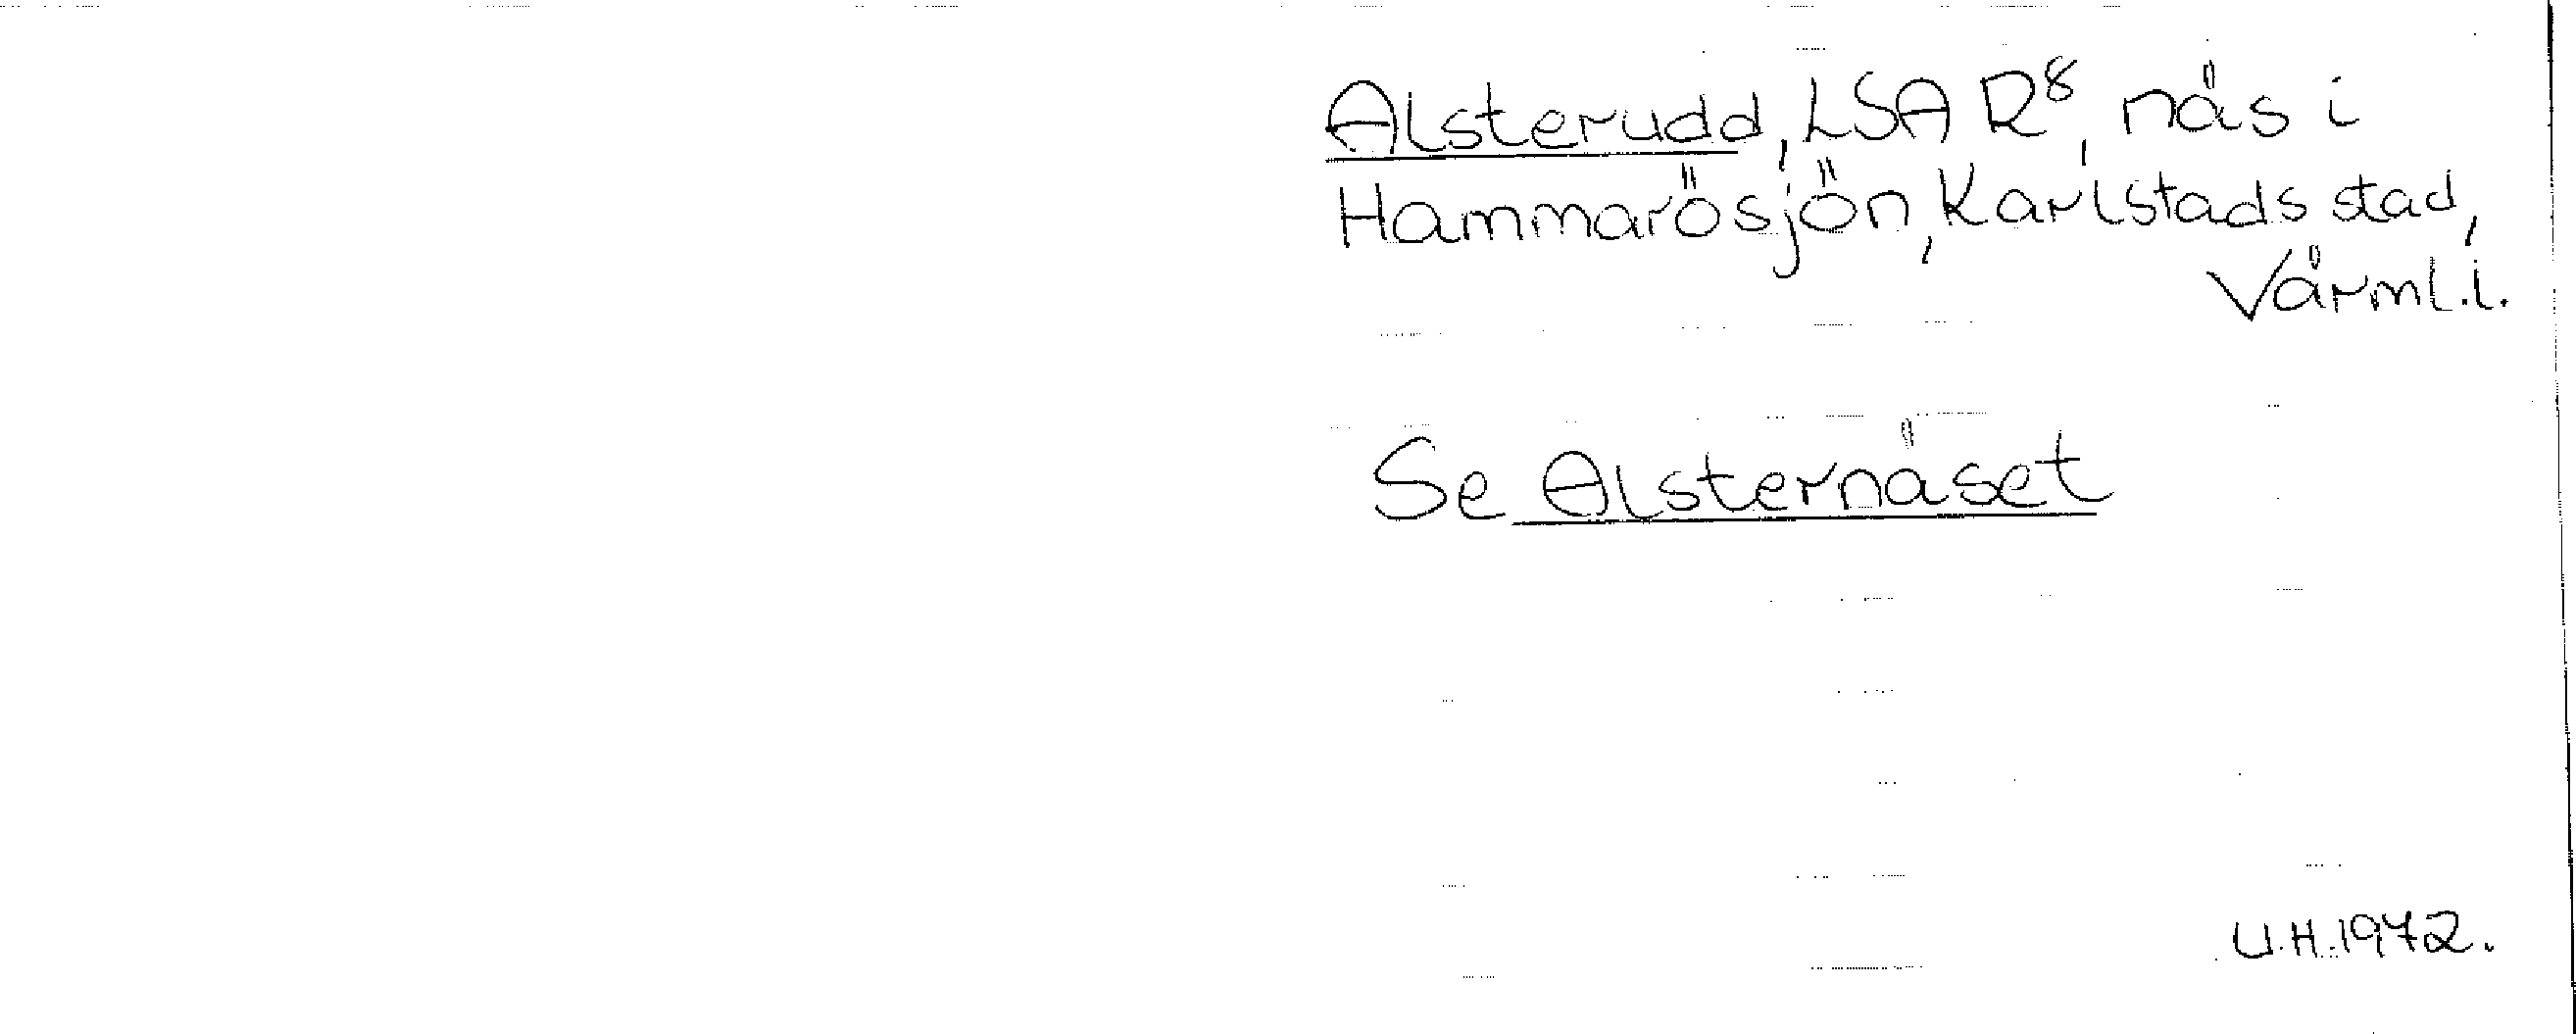 Alsterudd, LSA R⁸, näs i
Hammarösjön, Karlstads stad,
Värml.l.
Se Alsternäset
U.H. 1972.